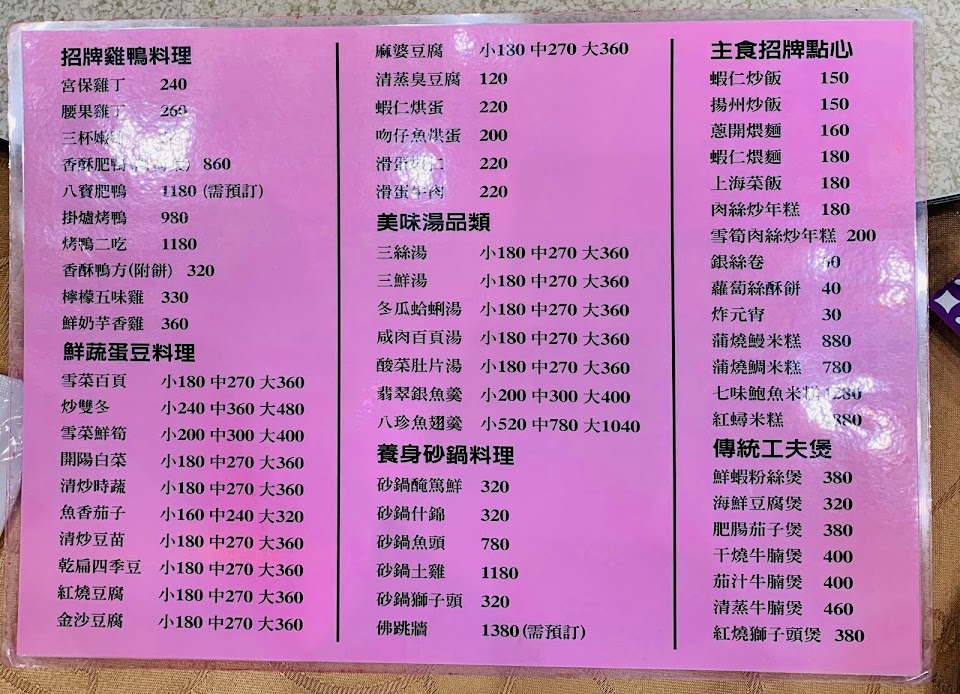 招牌雞鴨料理
宮保雞丁 240
腰果雞丁 260
三杯嫩
香酥肥鴨 860
八寶肥鴨 1180 (需預訂)
掛爐烤鴨 980
烤鴨二吃 1180
香酥鴨方(附餅) 320
檸檬五味雞 330
鮮奶芋香雞 360
鮮蔬蛋豆料理
雪菜百頁 小180 中270 大360
炒雙冬 小240 中360 大480
雪菜鮮筍 小200 中300 大400
開陽白菜 小180 中270 大360
清炒時蔬 小180 中270 大360
魚香茄子 小160 中240 大320
清炒豆苗 小180 中270 大360
乾扁四季豆 小180 中270 大360
紅燒豆腐 小180 中270 大360
金沙豆腐 小180 中270 大360
麻婆豆腐 小180 中270 大360
清蒸臭豆腐 120
蝦仁烘蛋 220
吻仔魚烘蛋 200
滑蛋蝦仁 220
滑蛋牛肉 220
美味湯品類
三絲湯 小180 中270 大360
三鮮湯 小180 中270 大360
冬瓜蛤蜊湯 小180 中270 大360
咸肉百頁湯 小180 中270 大360
酸菜肚片湯 小180 中270 大360
翡翠銀魚羹 小200 中300 大400
八珍魚翅羹 小520 中780 大1040
養身砂鍋料理
砂鍋醃篤鮮 320
砂鍋什錦 320
砂鍋魚頭 780
砂鍋土雞 1180
砂鍋獅子頭 320
佛跳牆 1380(需預訂)
主食招牌點心
蝦仁炒飯 150
揚州炒飯 150
蔥開煨麵 160
蝦仁煨麵 180
上海菜飯 180
肉絲炒年糕 180
雪筍肉絲炒年糕 200
銀絲卷
蘿蔔絲酥餅 40
炸元宵 30
蒲燒鰻米糕 880
蒲燒鯛米糕 780
七味鮑魚米糕 1280
紅蟳米糕 880
傳統工夫煲
鮮蝦粉絲煲 380
海鮮豆腐煲 320
肥腸茄子煲 380
干燒牛腩煲 400
茄汁牛腩煲 400
清蒸牛腩煲 460
紅燒獅子頭煲 380